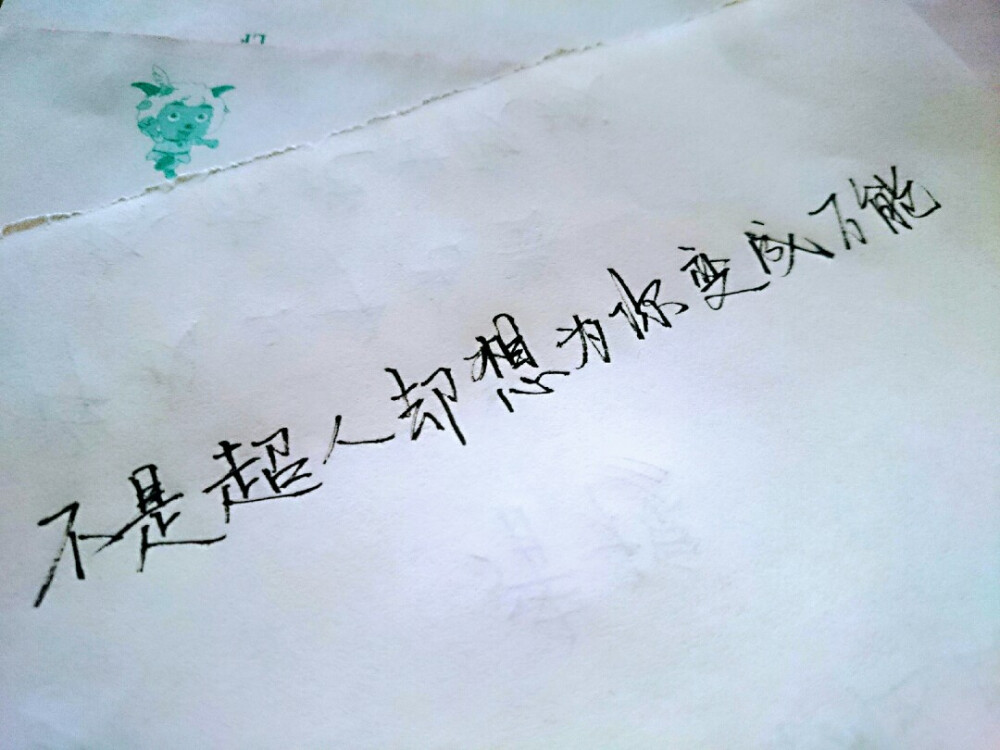 不是超人却想为你变成万能